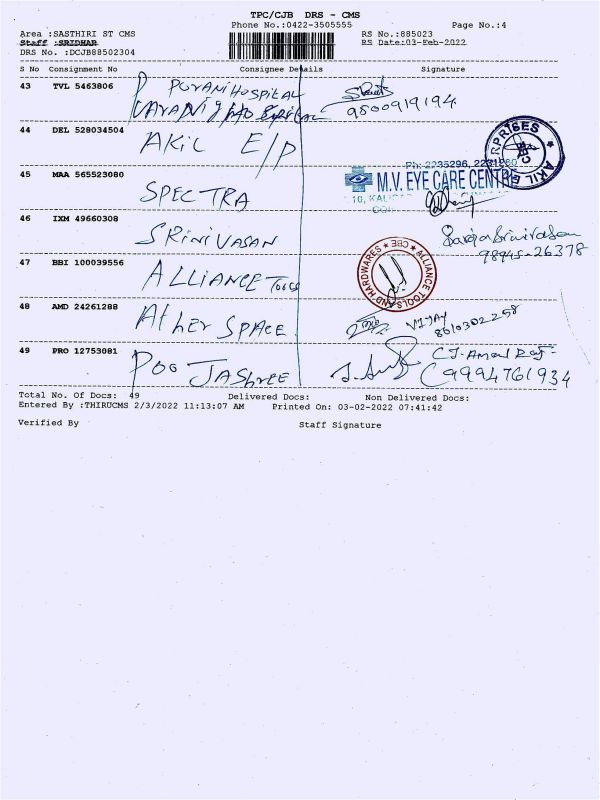 TPC/CJB DRS - CMS
Phone No.:0422-3505555 Page No.:4
Area :SASTHIRI ST CMS RS No.:885023
Staff :SRIDHAR RS Date:03-Feb-2022
DRS No. :DCJB88502304
S No Consignment No Consignee Details Signature
43 TVL 5463806 PORANI HOSPITAL
9500919194
44 DEL 528034504 AKIL E/P
ERPRISES ★ AKIL
CBE
45 MAA 565523080 SPECTRA
Ph: 2235296,
M.V. EYE CARE CENTRE
10,
46 IXM 49660308 SRINIVASAN
98945-26378
47 BBI 100039556 ALLIANCE TOOLS
★ ALLIANCE TOOLS AND HARDWARES ★ CBE
48 AMD 24261288 Ather SPACE
VIJAY
8610302258
49 PRO 12753081 POO JAShree
9994761934
Total No. Of Docs: 49 Delivered Docs: Non Delivered Docs:
Entered By :THIRUCMS 2/3/2022 11:13:07 AM Printed On: 03-02-2022 07:41:42
Verified By Staff Signature